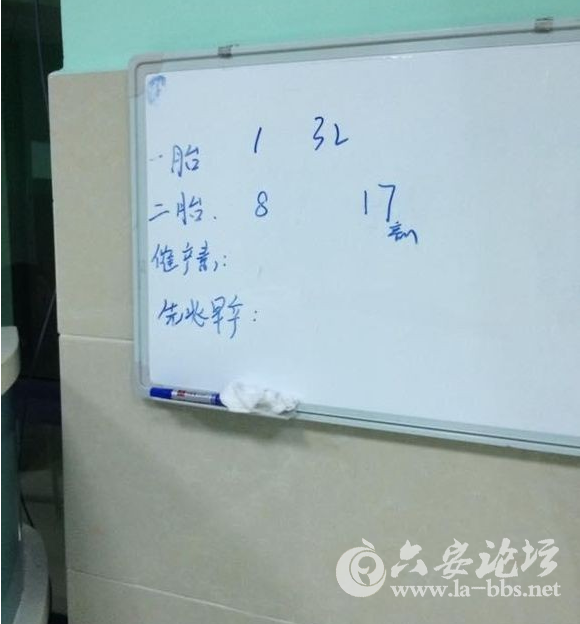 一胎 1 32
二胎. 8 17
催产素:
先兆早产:
六安论坛
www.la-bbs.net